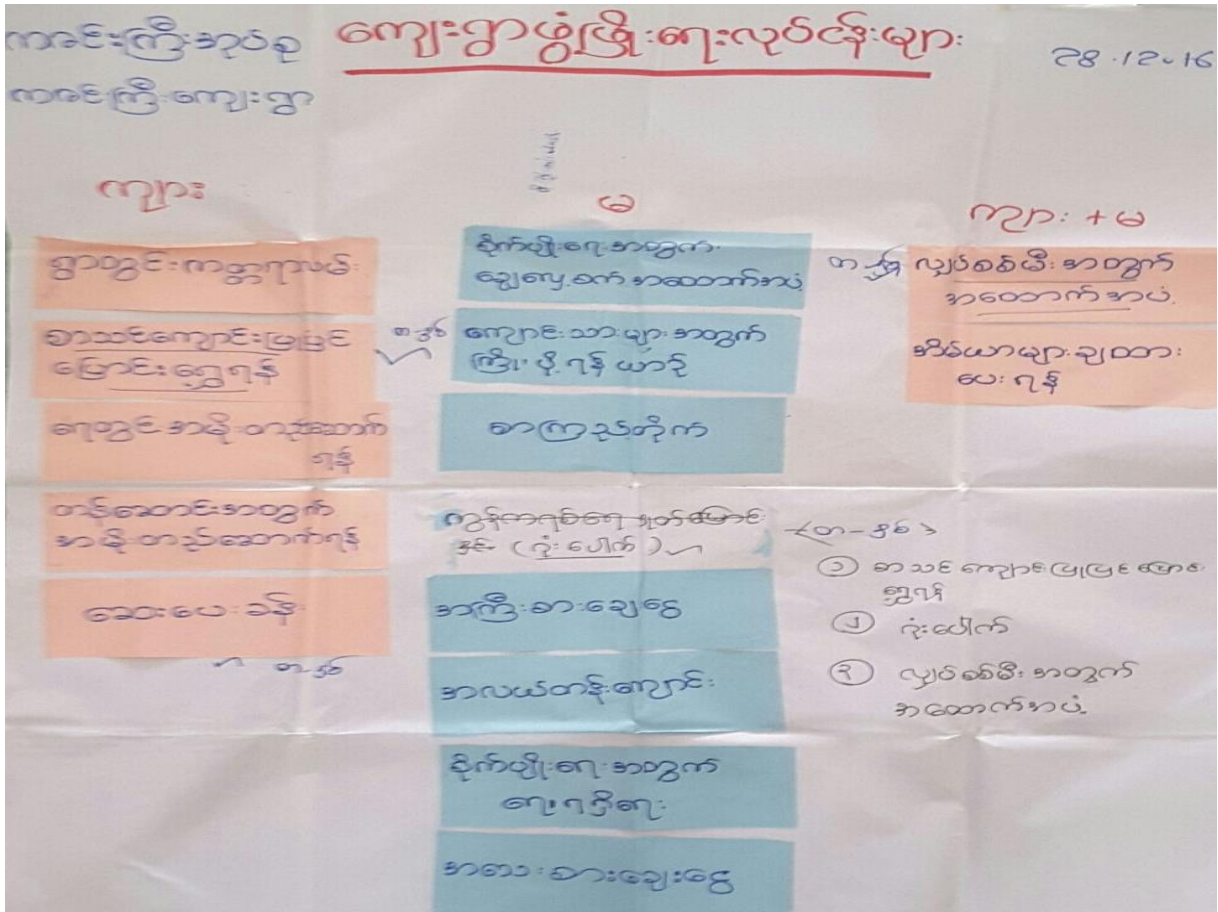 ကခင်းကြီးအုပ်စု
ကခင်ကြီးကျေးရွာ
ကျေးရွာဖွံ့ဖြိုးရေးလုပ်ငန်းများ
28.12.16
ကျား
ရွာတွင်းကတ္တရာလမ်း
စာသင်ကျောင်းပြုပြင်
ပြောင်းရွှေ့ရန်
ရေတွင်းအမိုးတည်ဆောက်
ရန်
တန်ဆောင်းအတွက်
အမိုးတည်ဆောက်ရန်
ဆေးပေးခန်း
မ
စိုက်ပျိုးရေးအတွက်
ရွှေ့လျှောင့်စက်အထောက်အပံ့
ကျောင်းသားများအတွက်
ကြိုပို့ရန်ယာဉ်
စာကြည့်တိုက်
ကျွန်ကရစ်ရေ ရုတ်မြောင်း
(ဂုံးပေါက်)
အကြီးစားချေးငွေ
အလယ်တန်းကျောင်း
စိုက်ပျိုးရေးအတွက်
ရေရရှိရေး
အသေးစားချေးငွေ
ကျား + မ
လျှပ်စစ်မီးအတွက်
အထောက်အပံ့
အိမ်ယာများချထား
ပေးရန်
<တ-နှစ်>
၁ စာသင်ကျောင်းပြုပြင်ပြောင်း
ရွှေ့ရန်
၂ ဂုံးပေါက်
၃ လျှပ်စစ်မီးအတွက်
အထောက်အပံ့